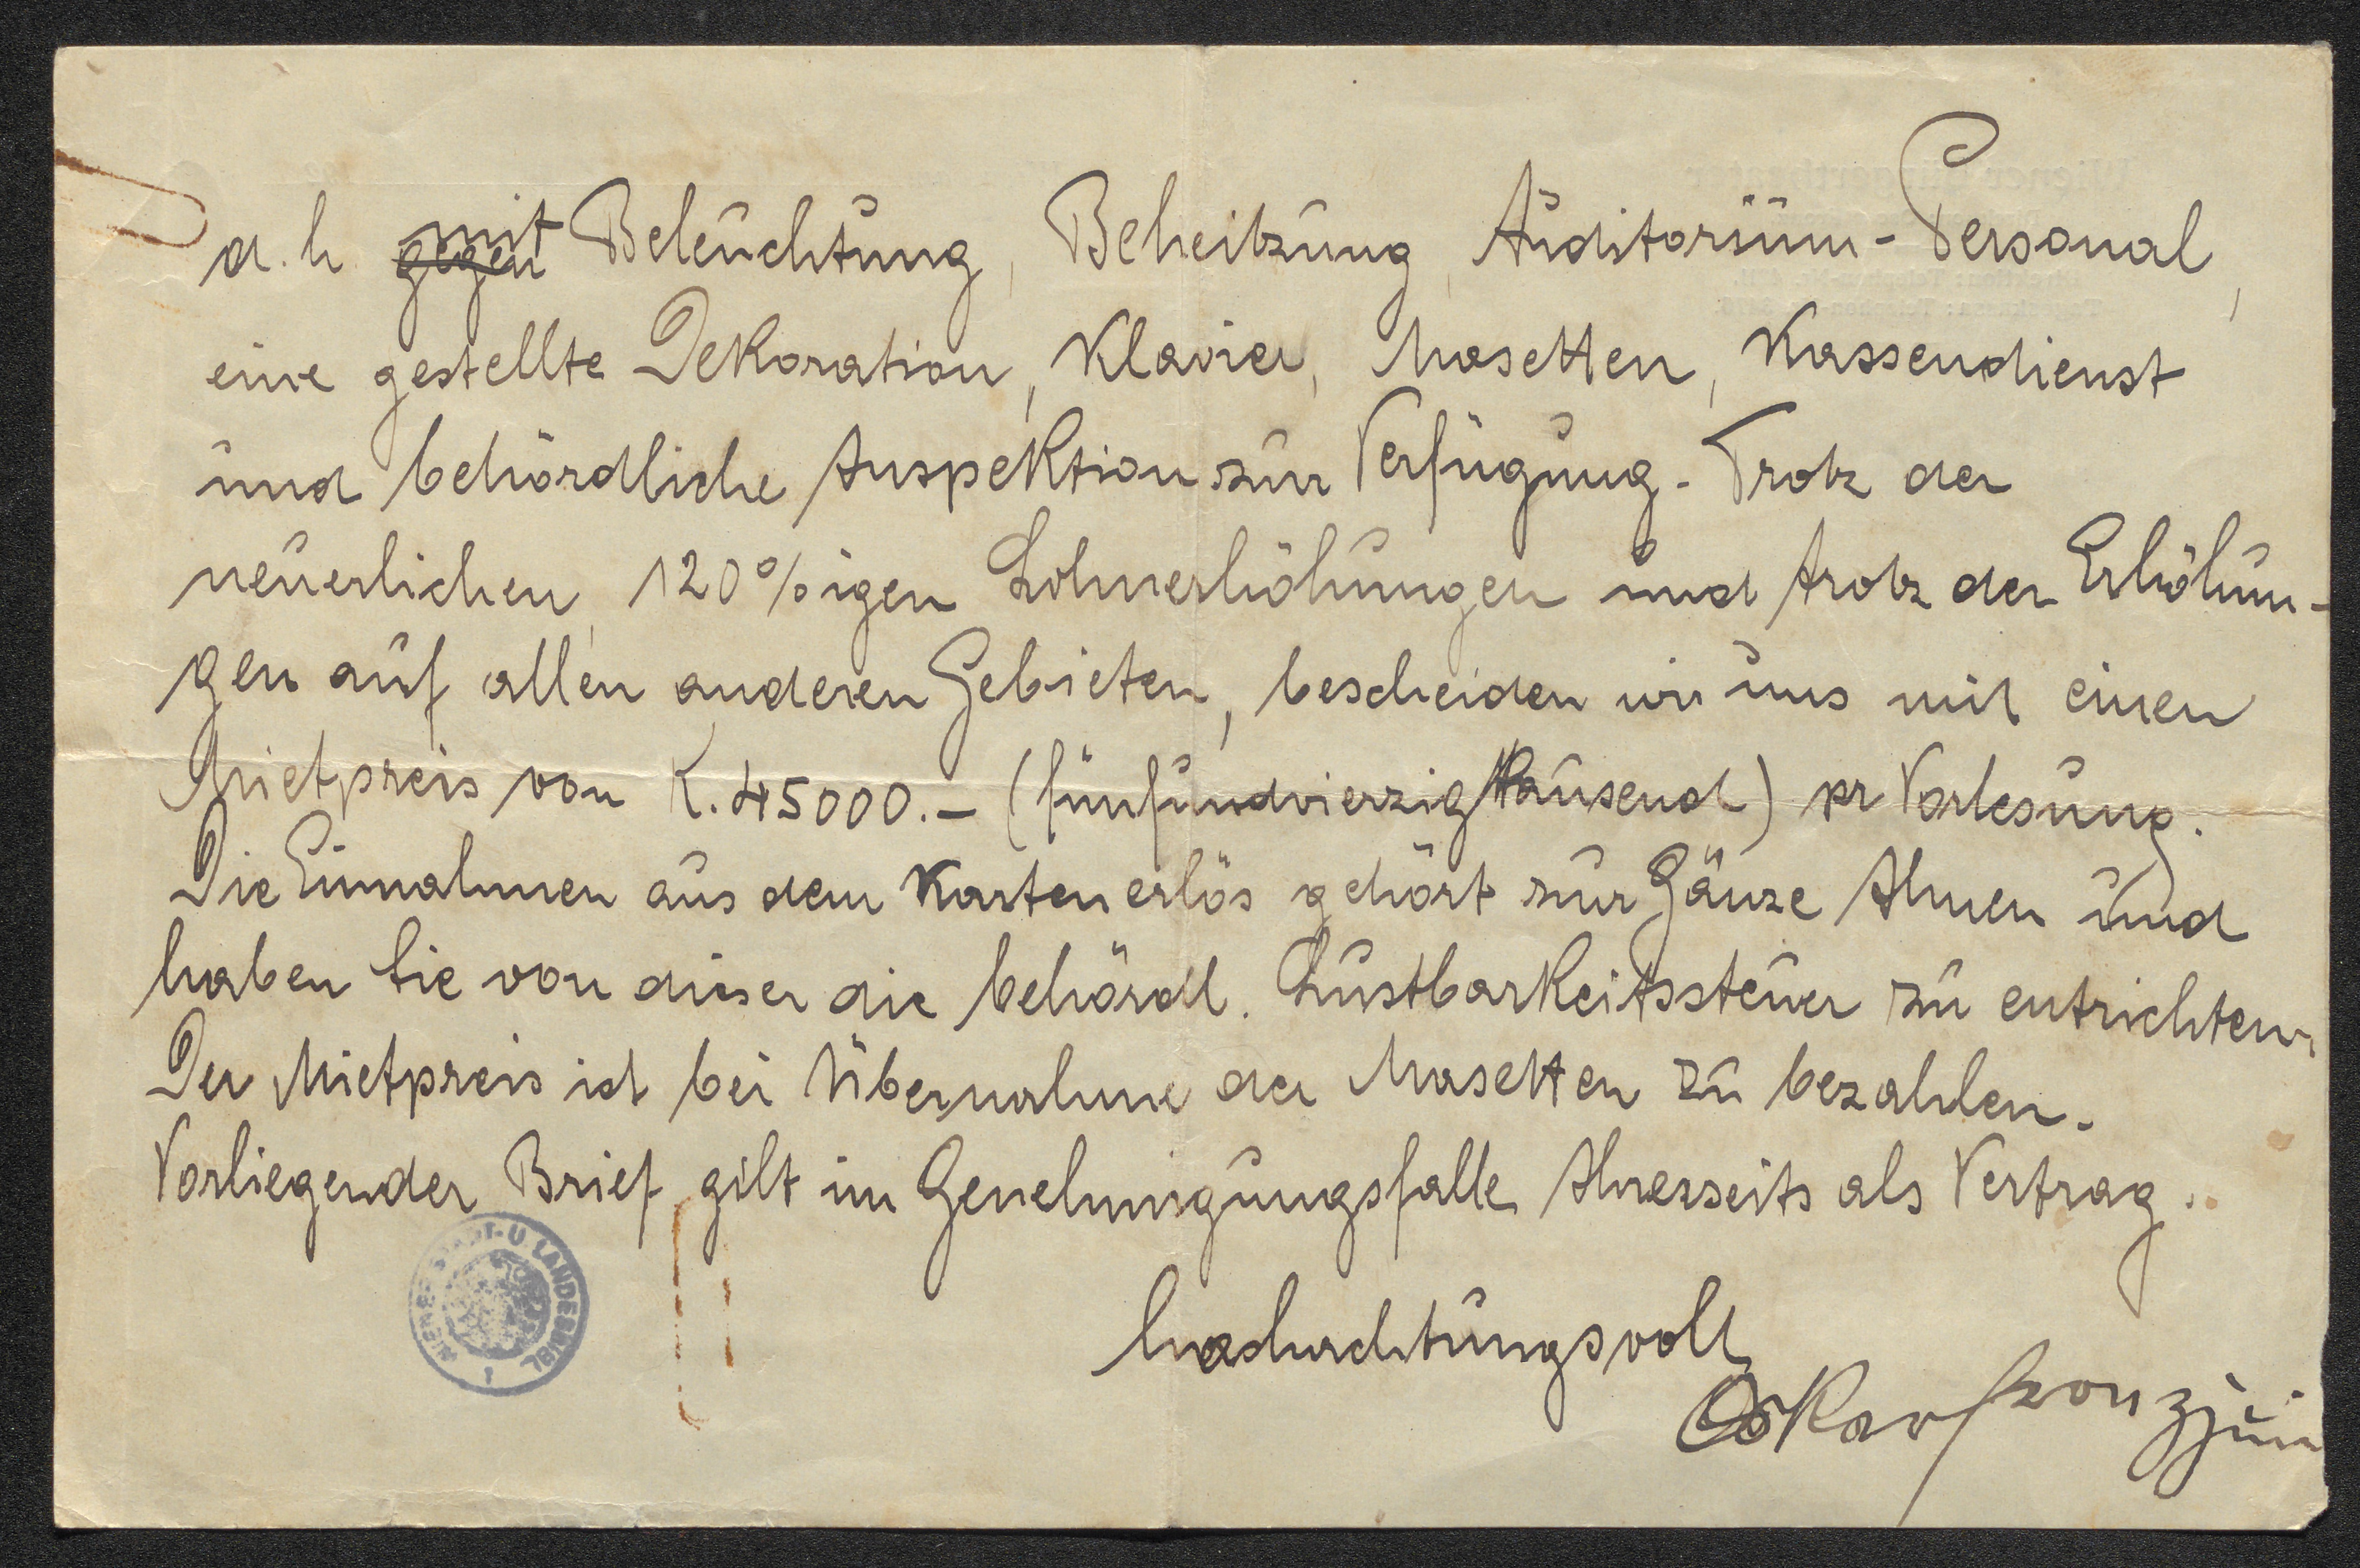 d. h. ~~gegen~~ mit Beleuchtung, Beheitzung, Auditorium-Personal,
eine gestellte Dekoration, Klavier, Masetten, Kassendienst
und behördliche Inspektion zur Verfügung. Trotz der
neuerlichen, 120%igen Lohnerhöhungen und trotz der Erhöhun-
gen auf allen anderen Gebieten, bescheiden wir uns mit einen
Mietpreis von K. 45000.- (fünfundvierzigtausend) pr Vorlesung.
Die Einnahmen aus dem Kartenerlös gehört zur Gänze Ihnen und
haben Sie von dieser die behördl. Lustbarkeitssteuer zu entrichten.
Der Mietpreis ist bei Übernahme der Masetten zu bezahlen.
Vorliegender Brief gilt im Genehmigungsfalle Ihrerseits als Vertrag.
hochachtungsvoll
Oskar Franz jun
WIENER STADT-U LANDESBIBL